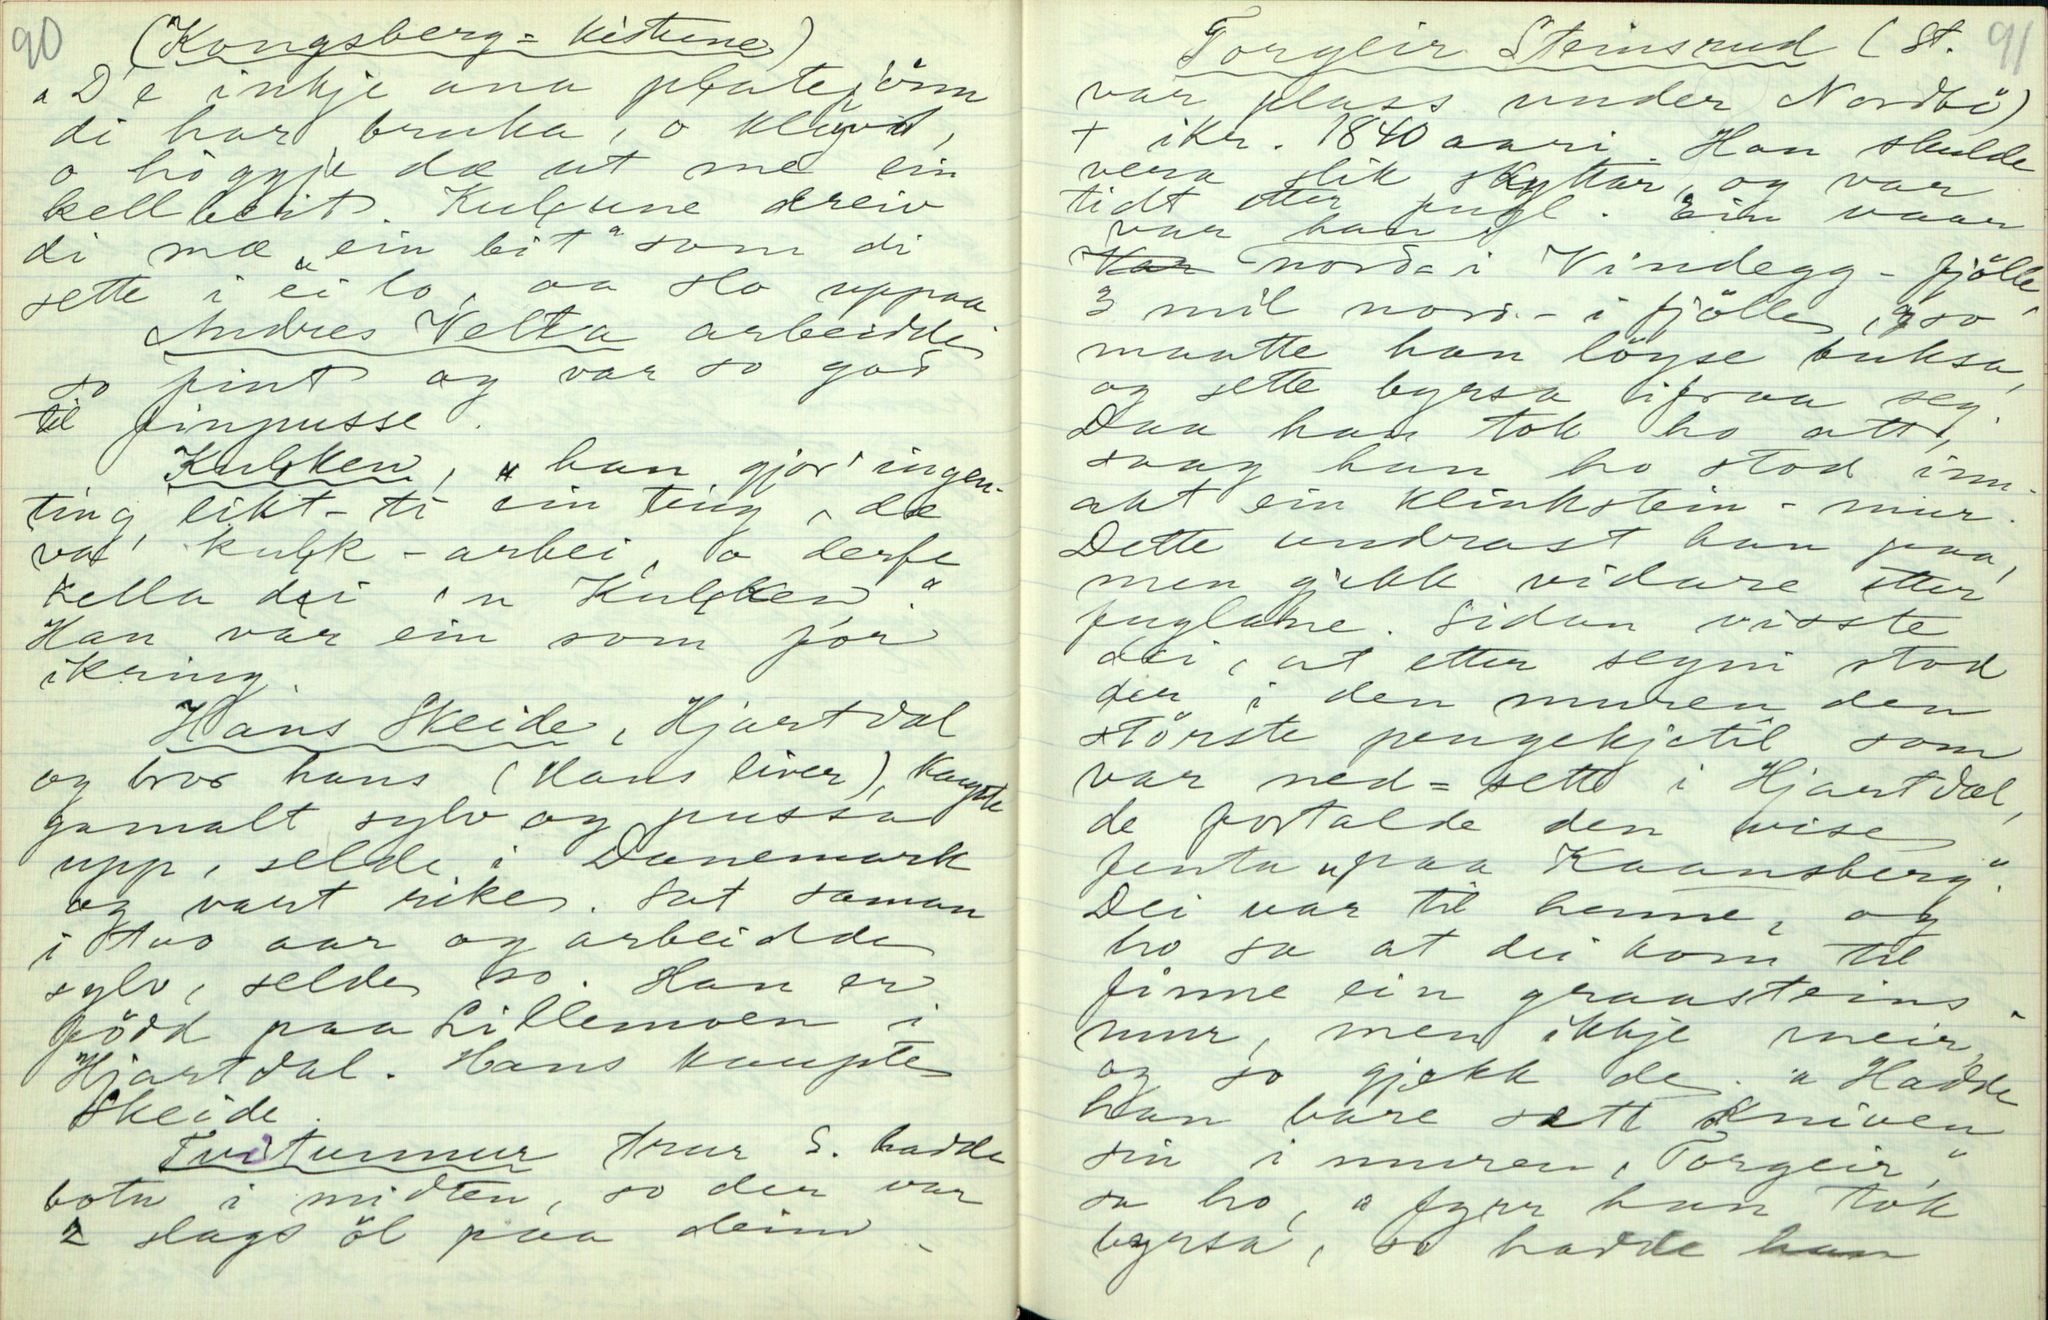 90
(Kongsberg-kistune)
"D'e inkje ana platejønn
di har bruka, o kløyvd,
o höggje dæ ut me ein
kell beit. Kulune dreiv
di mæ "ein bit" som di
sette i ei lo, aa slo uppaa
Andres Velta arbeidde
so fint og var so god
til finpusse.
Kulken, "han gjor' ingen-
ting likt-ti ein ting, dæ
va' kulk-arbei, o derfe
kella dei 'n Kulken."
Han var ein som for
ikring.
Hans Skeide, Hjartdal
og bror hans (Hans liver), kaupte
gamalt sylv og pussa
upp, selde i Danemark
og vart rike. Sat saman
i tvo aar og arbeidde
sylv, selde so. Han er
född paa Lillemoen i
Hjartdal. Hans kaupte
Skeide.
Tviturnur trur S. hadde
botn i midten, so der var
2 slags öl paa deim.
91
Torgeir Steinsrud (St.
var plass under Nordbö)
+ ikr. 1840 aari. Han skulde
vera slik skyttar, og var
tidt etter fugl. Ein vaar
var han
Var nord-i Vindegg-fjölle,
3 mil nord-i fjölle, og so
maatte han löyse buksa,
og sette byrsa ifraa seg.
Daa han tok ho att,
saag han ho stod inn-
aat ein klinkstein-mur.
Dette undrast han paa,
men gjekk vidare etter
fuglane. Sidan visste
dei, at etter segni stod
der i den muren den
störste pengekjetil som
var ned-sett i Hjartdal,
de fortalde den vise
jenta "paa Kaansberg".
Dei var til henne, og
ho sa at dei kom til
finne ein graasteins-
mur, men ikkje meir,
og so gjekk de. "Hadde
han bare sett kniven
sin i muren, Torgeir,"
sa ho, "fyrr han tok
byrsa, so hadde han